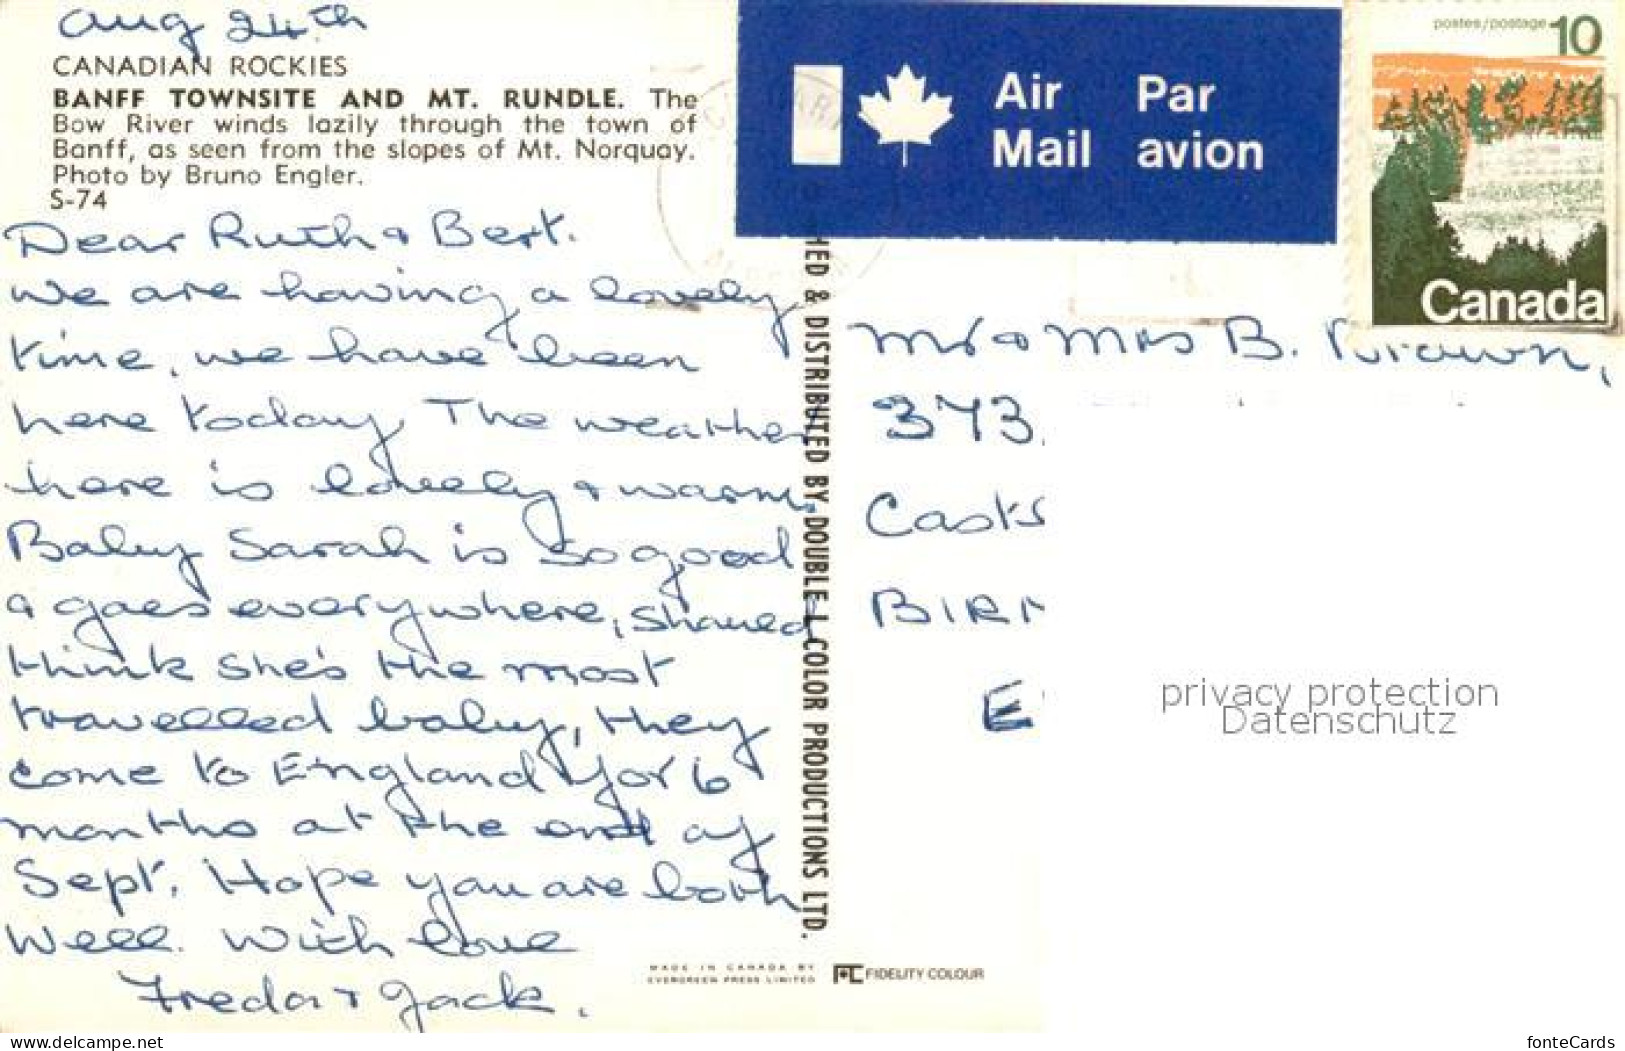 Aug 24th
CANADIAN ROCKIES
BANFF TOWNSITE AND MT. RUNDLE. The
Bow River winds lazily through the town of
Banff, as seen from the slopes of Mt. Norquay.
Photo by Bruno Engler.
S-74
Dear Ruth & Bert.
We are having a lovely
time, we have been
here today, The weather
here is lovely & warm,
Baby Sarah is so good
& goes everywhere, should
think she's the most
travelled baby, they
come to England for 6
months at the end of
Sept. Hope you are both
well. With love
Freda & Jack.
HED & DISTRIBUTED BY DOUBLE L COLOR PRODUCTIONS LTD.
MADE IN CANADA BY
EVERGREEN PRESS LIMITED
FIDELITY COLOUR
Air Mail
Par avion
postes/postage 10
Canada
Mr & Mrs B. Brown,
373
Cast
BIR
E
privacy protection
Datenschutz
www.delcampe.net
fonteCards